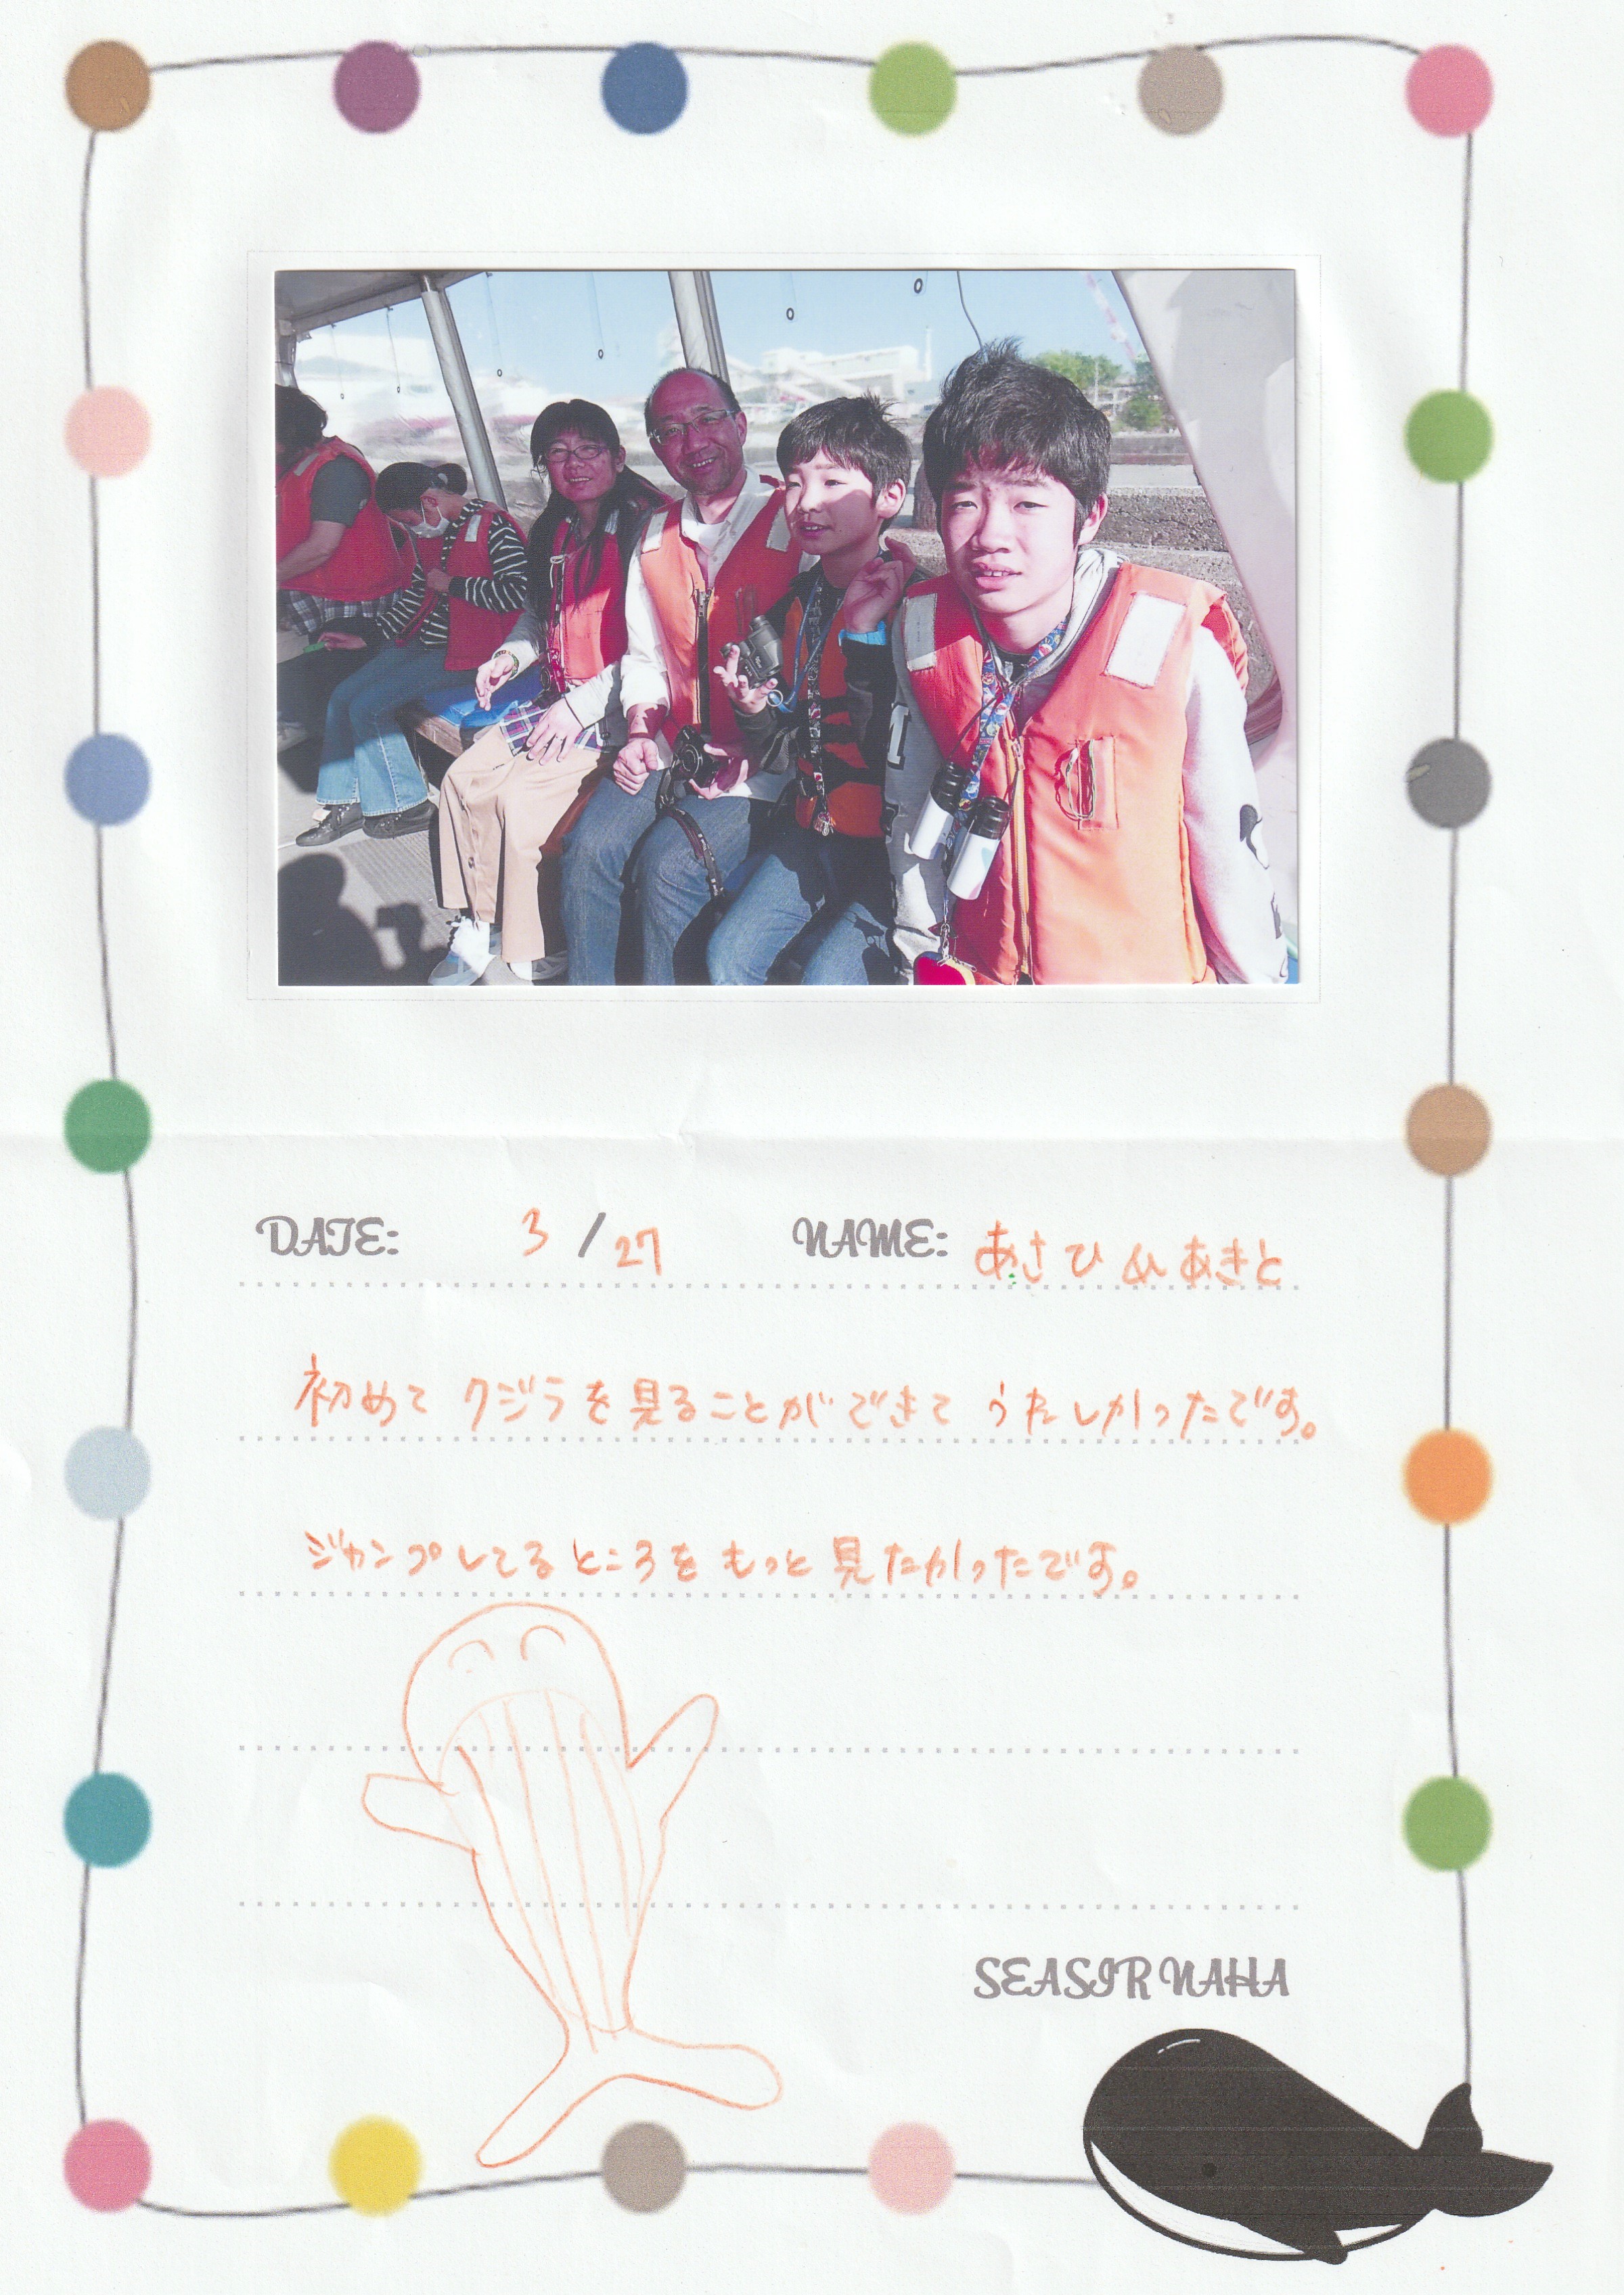 DATE: 3/27 NAME: あさひ & あきと
初めて クジラを見ることができて うれしかったです。
ジャンプしてるところを もっと 見たかったです。
SEASIR NAHA